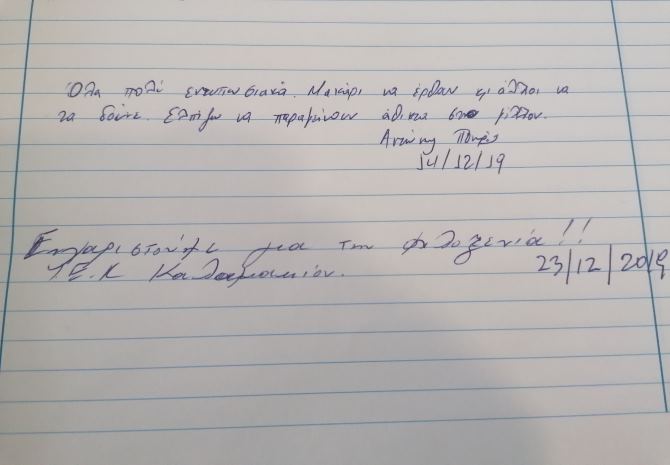 Όλα πολύ εντυπωσιακά. Μακάρι να έρθουν κι άλλοι να
τα δούνε. Ελπίζω να παραμείνουν άθικτα στο μέλλον.
Αντώνης
14/12/19
Ευχαριστούμε για την φιλοξενία!!
1Ε.Κ Καλαμακίου.
23/12/2019